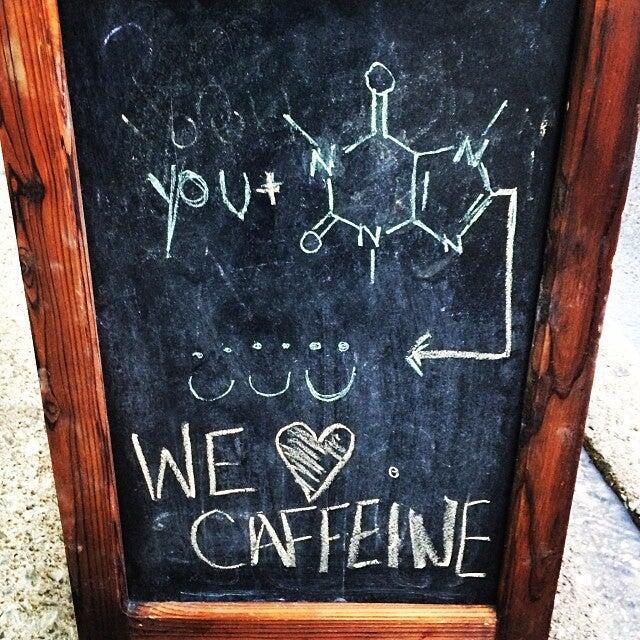 YOU +
O
N
N
O
N
N
WE ♥
CAFFEINE